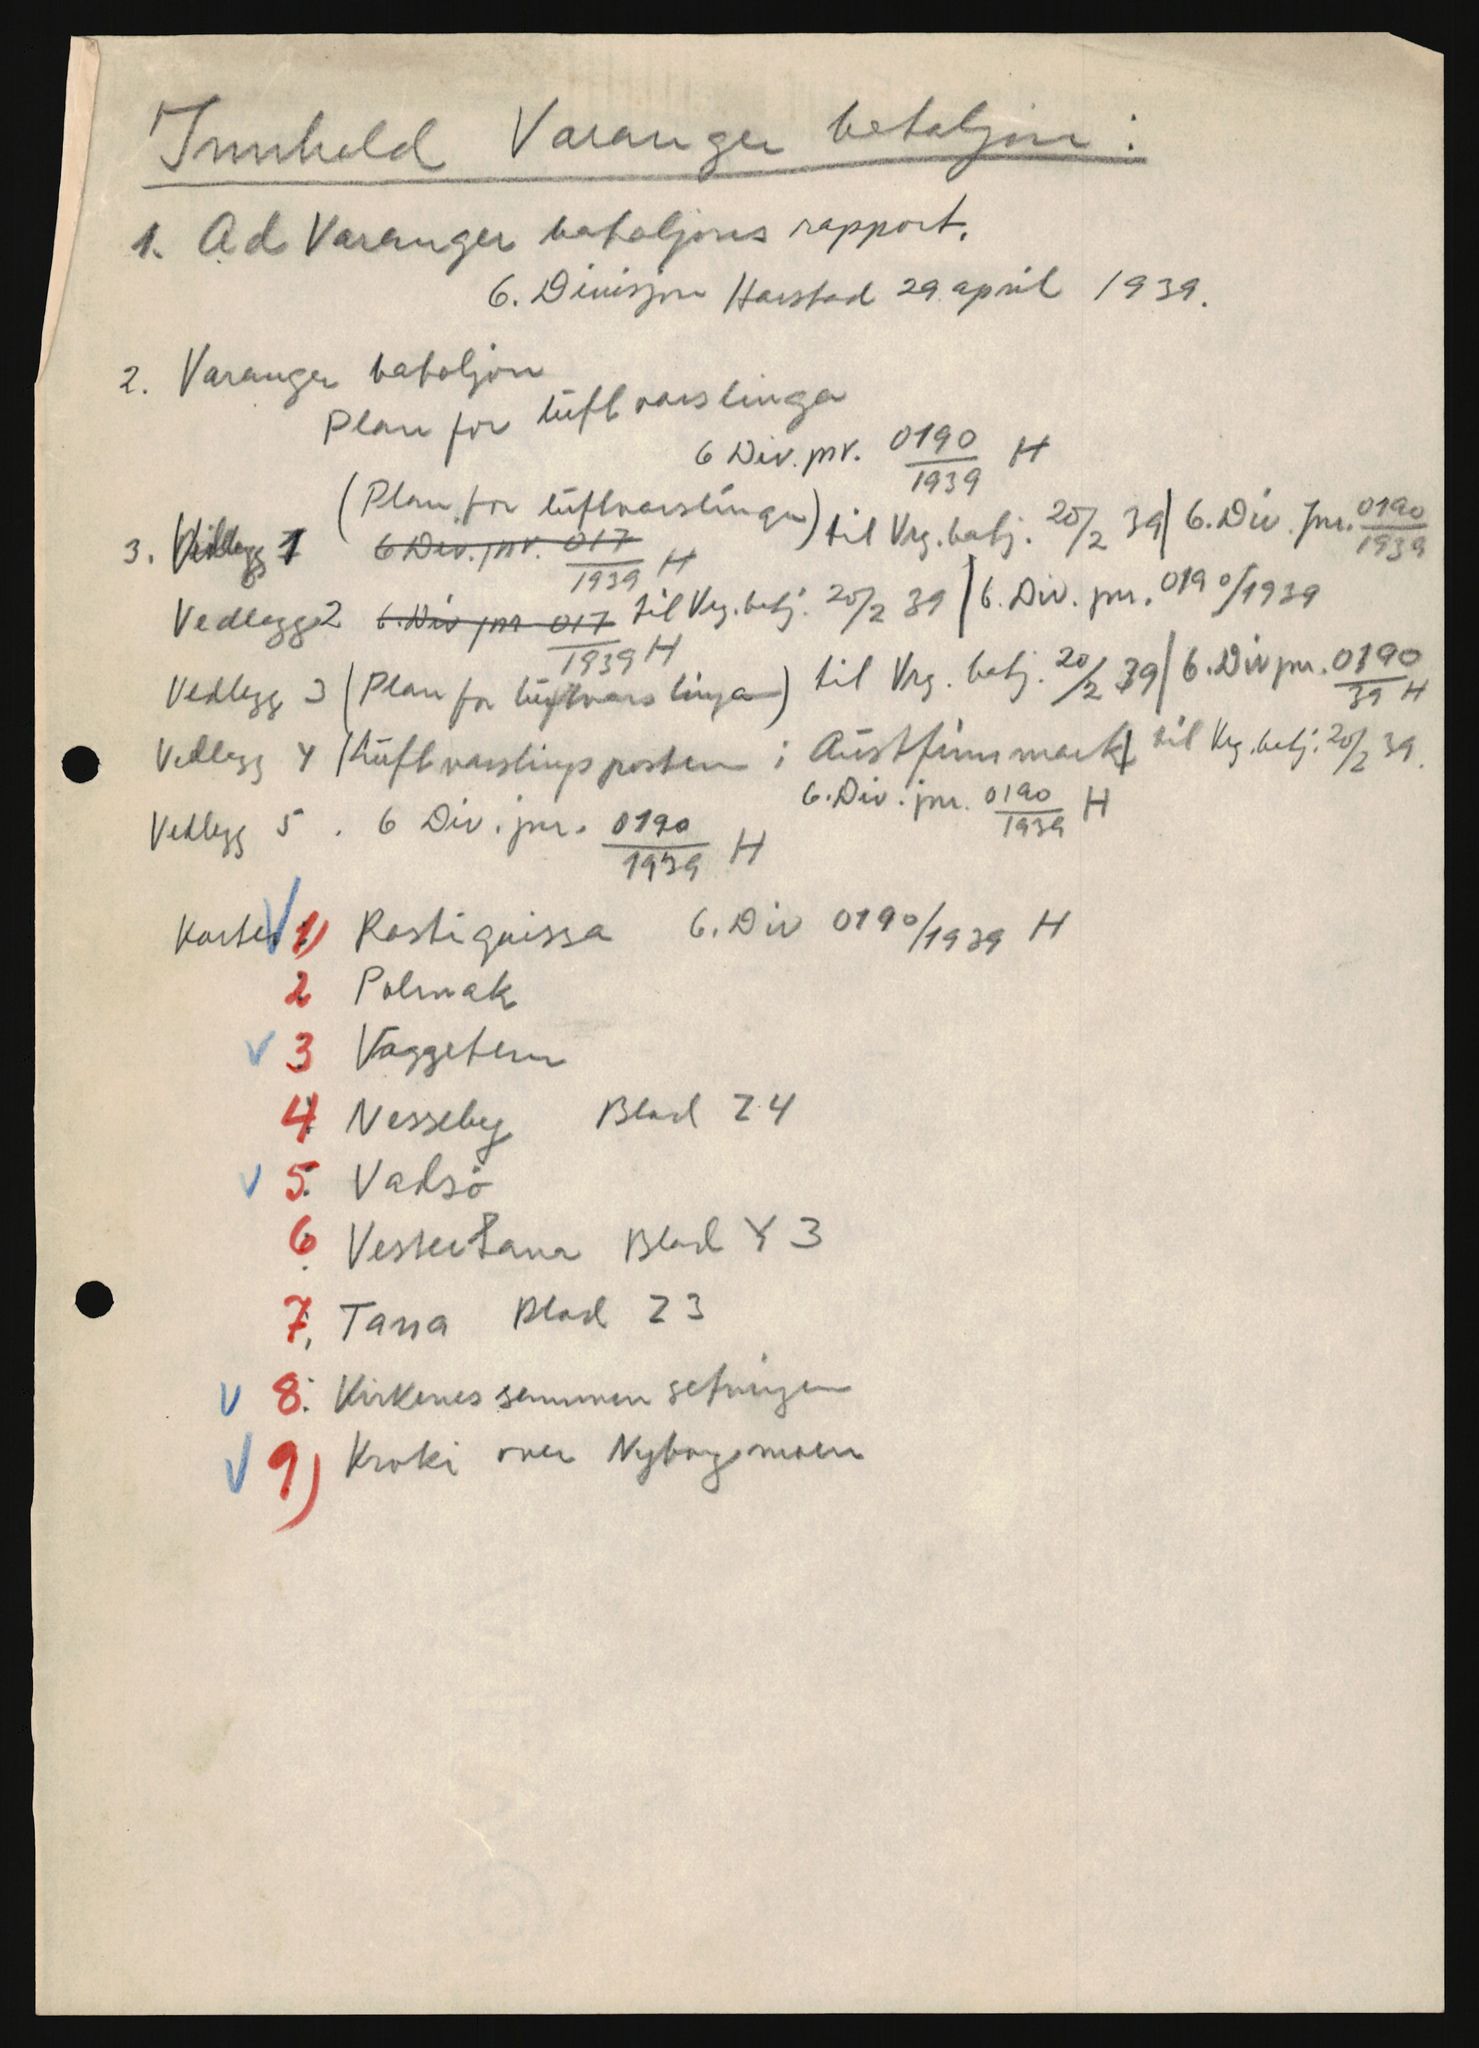 Innhold Varanger bataljon:
1. Ad Varanger bataljons rapport.
6. Divisjon Harstad 29 april 1939.
2. Varanger bataljon
Plan for luftvarslinga
6 Div. jnr. 0190/1939 H
3. Vedlegg 1 (Plan for luftvarslinga) til Vrg. batj. 20/2 39 / 6. Div. jnr. 0190/1939
6 Div. jnr. 017/1939 H
Vedlegg 2 6. Div jnr 017/1939 H til Vrg. batj. 20/2 39 / 6. Div. jnr. 0190/1939
Vedlegg 3 (Plan for luftvarslinga) til Vrg. batj. 20/2 39 / 6. Div jnr. 0190/39 H
Vedlegg 4 (Luftvarslingsposten i Austfinnmark) til Vrg. batj. 20/2 39.
6. Div. jnr. 0190/1939 H
Vedlegg 5. 6 Div. jnr. 0190/1939 H
Karter 1) Rastigaissa 6. Div 0190/1939 H
2 Polmak
3 Vaggetem
4 Nesseby Blad Z4
5. Vadsö
6. Vestertana Blad Y3
7. Tana Blad Z3
8. Kirkenes
9) Kroki over Nyborgmoen